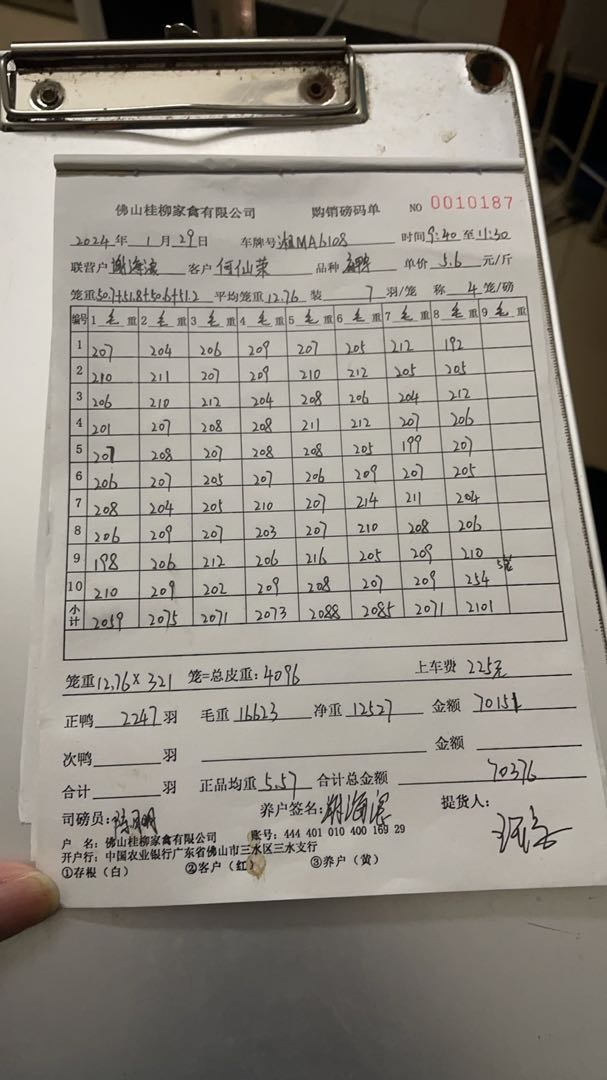 佛山桂柳家禽有限公司 购销磅码单 NO 0010187
2024年 1月 29日 车牌号 湘MA6108 时间 9:40 至 11:30
联营户 谢海滨 客户 何仙荣 品种 单价 5.6 元/斤
笼重 50.7+51.8+50.6+51.2 平均笼重 12.76 装 7 羽/笼 称 4 笼/磅
编号 1 毛 重 2 毛 重 3 毛 重 4 毛 重 5 毛 重 6 毛 重 7 毛 重 8 毛 重 9 毛 重
1 207 204 206 209 207 205 212 192
2 210 211 207 209 210 212 205 205
3 206 210 212 204 208 206 204 212
4 201 207 208 208 211 212 207 206
5 207 208 207 208 208 205 199 207
6 206 207 205 207 206 209 207 205
7 208 204 205 210 207 214 211 204
8 206 209 207 203 207 210 208 206
9 198 206 212 206 216 205 209 210
10 210 209 202 209 208 207 209 254 5笼
小计 2059 2075 2071 2073 2088 2085 2071 2101
笼重 12.76 × 321 笼=总皮重: 4096 上车费 225元
正鸭 2247 羽 毛重 16623 净重 12527 金额 70151
次鸭 羽 金额
合计 羽 正品均重 5.57 合计总金额 70376
司磅员: 养户签名: 谢海滨 提货人:
户 名: 佛山桂柳家禽有限公司 账号: 444 401 010 400 169 29
开户行: 中国农业银行广东省佛山市三水区三水支行
①存根（白） ②客户（红） ③养户（黄）